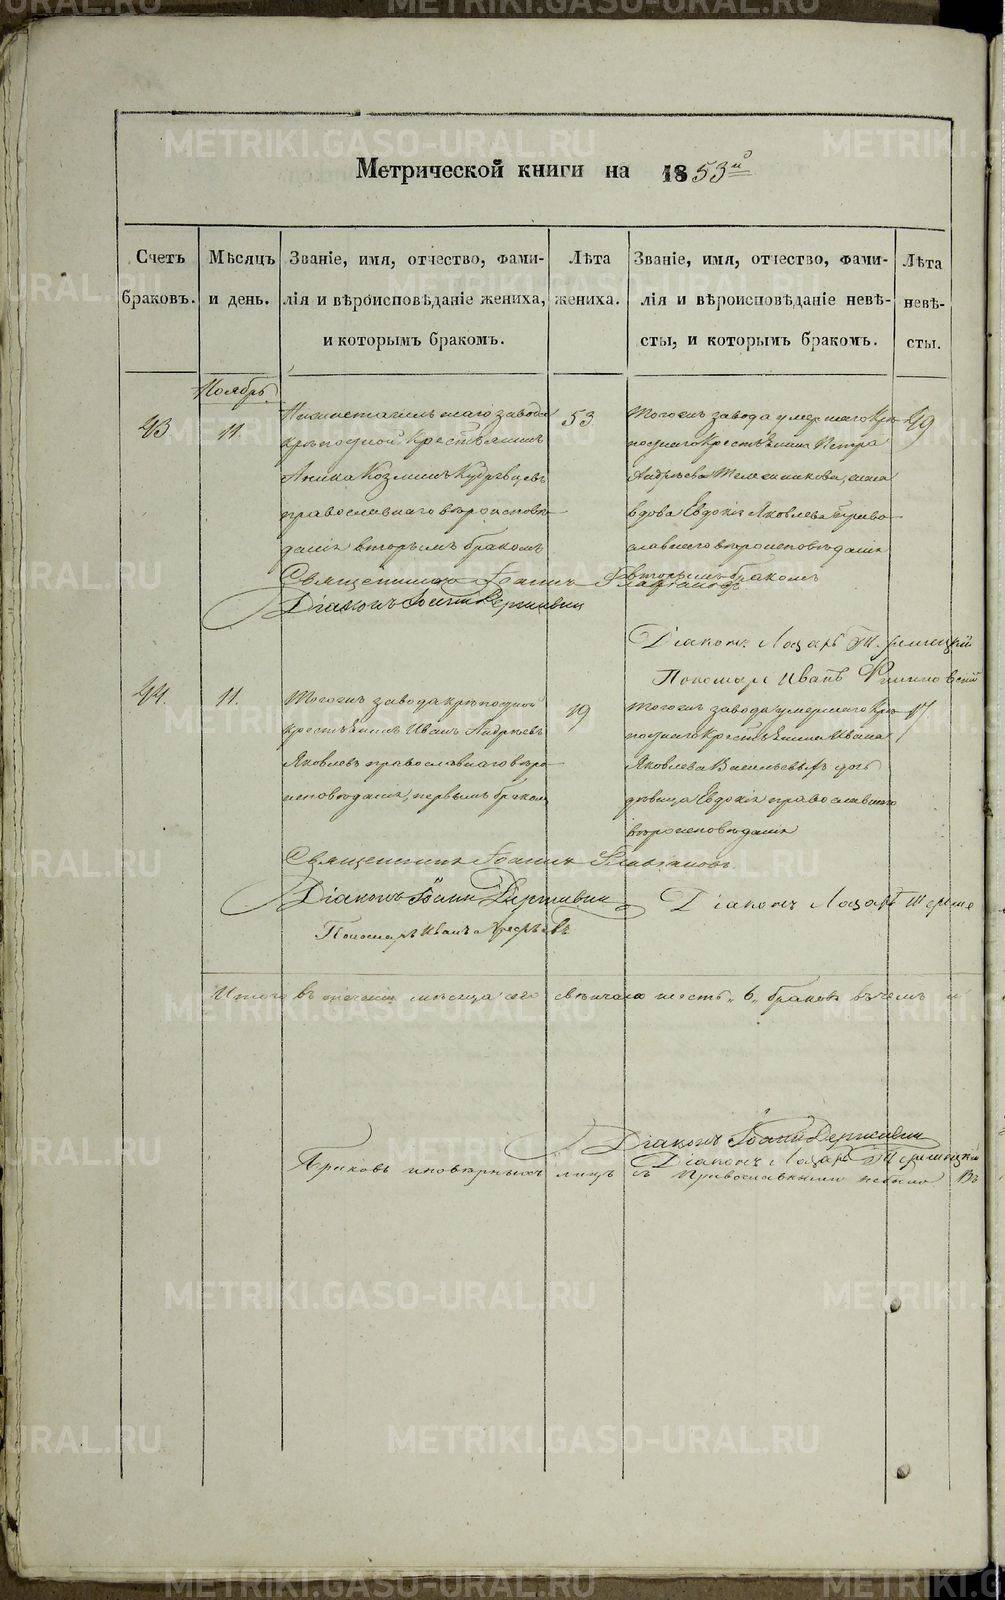 Метрической книги на 1853й
Счетъ браковъ.
Мѣсяцъ и день.
Званіе, имя, отчество, фами-
лія и вѣроисповѣданіе жениха,
и которымъ бракомъ.
Лѣта жениха.
Званіе, имя, отчество, фами-
лія и вѣроисповѣданіе невѣ-
сты, и которымъ бракомъ.
Лѣта невѣ-
сты.
Ноябрь
43
11.
завода
крѣпостной крестьянинъ
Козминъ Кудрявцевъ
православнаго вѣроисповѣ-
данія вторымъ бракомъ
53
Тогожъ завода умершаго крѣ-
постнаго крестьянина Петра
Андрѣева жена
вдова Евдокія Яковлева право-
славнаго вѣроисповѣданія
вторымъ бракомъ
49
Священникъ Іоаннъ
Діаконъ Іоаннъ Державин
Діаконъ Лазарь
Пономарь Иванъ
44.
11.
Тогожъ завода крѣпостной
крестьянинъ Иванъ Андрѣевъ
Яковлевъ православнаго вѣро-
исповѣданія, первымъ бракомъ
19
Тогожъ завода умершаго крѣ-
постнаго крестьянина Ивана
Яковлева Васильевыхъ дочь
дѣвица Евдокія православнаго
вѣроисповѣданія
17
Священникъ Іоаннъ
Діаконъ Іоаннъ Державин
Діаконъ Лазарь
Пономарь Иванъ
Итого въ теченіи мѣсяца сего вѣнчано шесть „6„ браковъ въ чемъ и
Діаконъ Іоаннъ Державин
Діаконъ Лазарь
Браковъ иновѣрныхъ лицъ съ Православными небыло Въ
METRIKI.GASO-URAL.RU